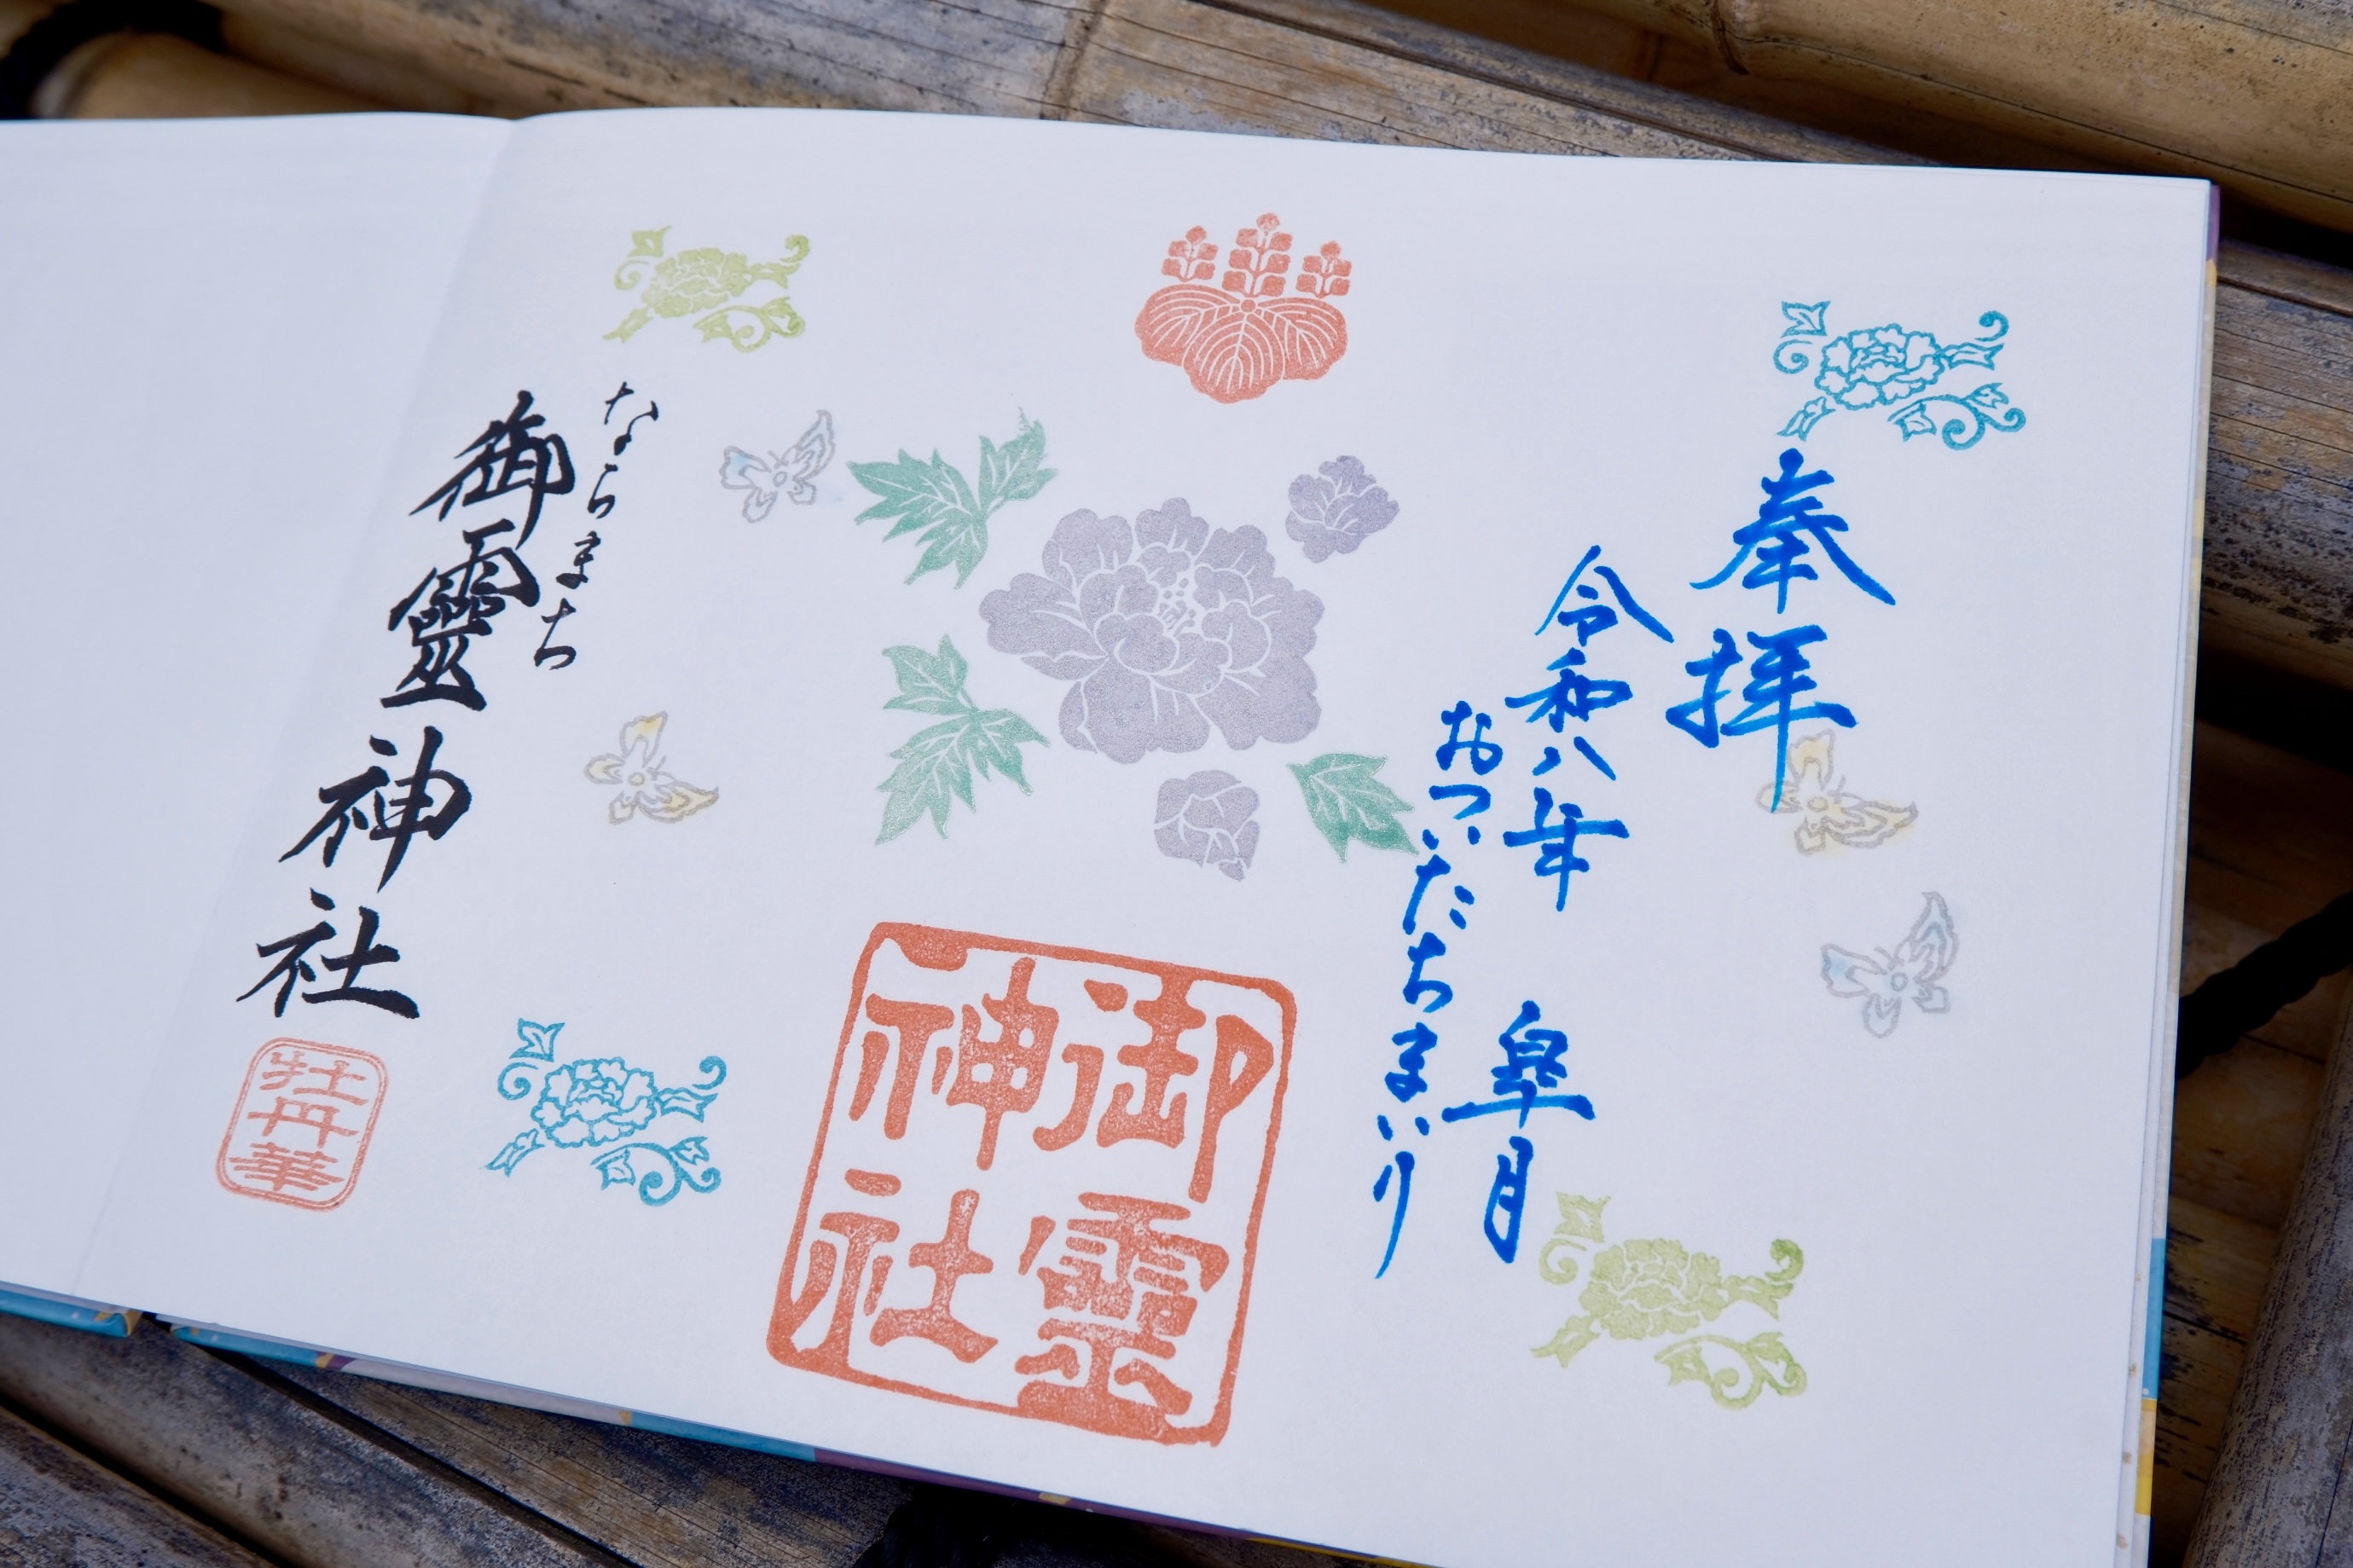 奉拝
令和八年 皐月
おついたちまいり
御靈
神社
ならまち
御靈神社
牡丹華